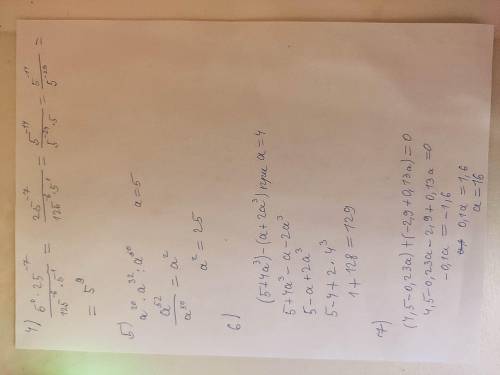 4) 5⁰ · 25⁻⁷ / 125⁻⁸ · 5¹ = 25⁻⁷ / 125⁻⁸ · 5¹ = 5⁻¹⁴ / 5⁻²⁴ · 5 = 5⁻¹⁴ / 5⁻²³ =
= 5⁹
5) a²⁰ · a³² : a⁵⁰ a=5
a⁵² / a⁵⁰ = a²
a² = 25
6)
(5+4a³)-(a+2a³) при a=4
5+4a³-a-2a³
5-a+2a³
5-4+2·4³
1+128=129
7)
(4,5-0,23a)+(-2,9+0,13a)=0
4,5-0,23a-2,9+0,13a=0
-0,1a=-1,6
0,1a=1,6
a=16